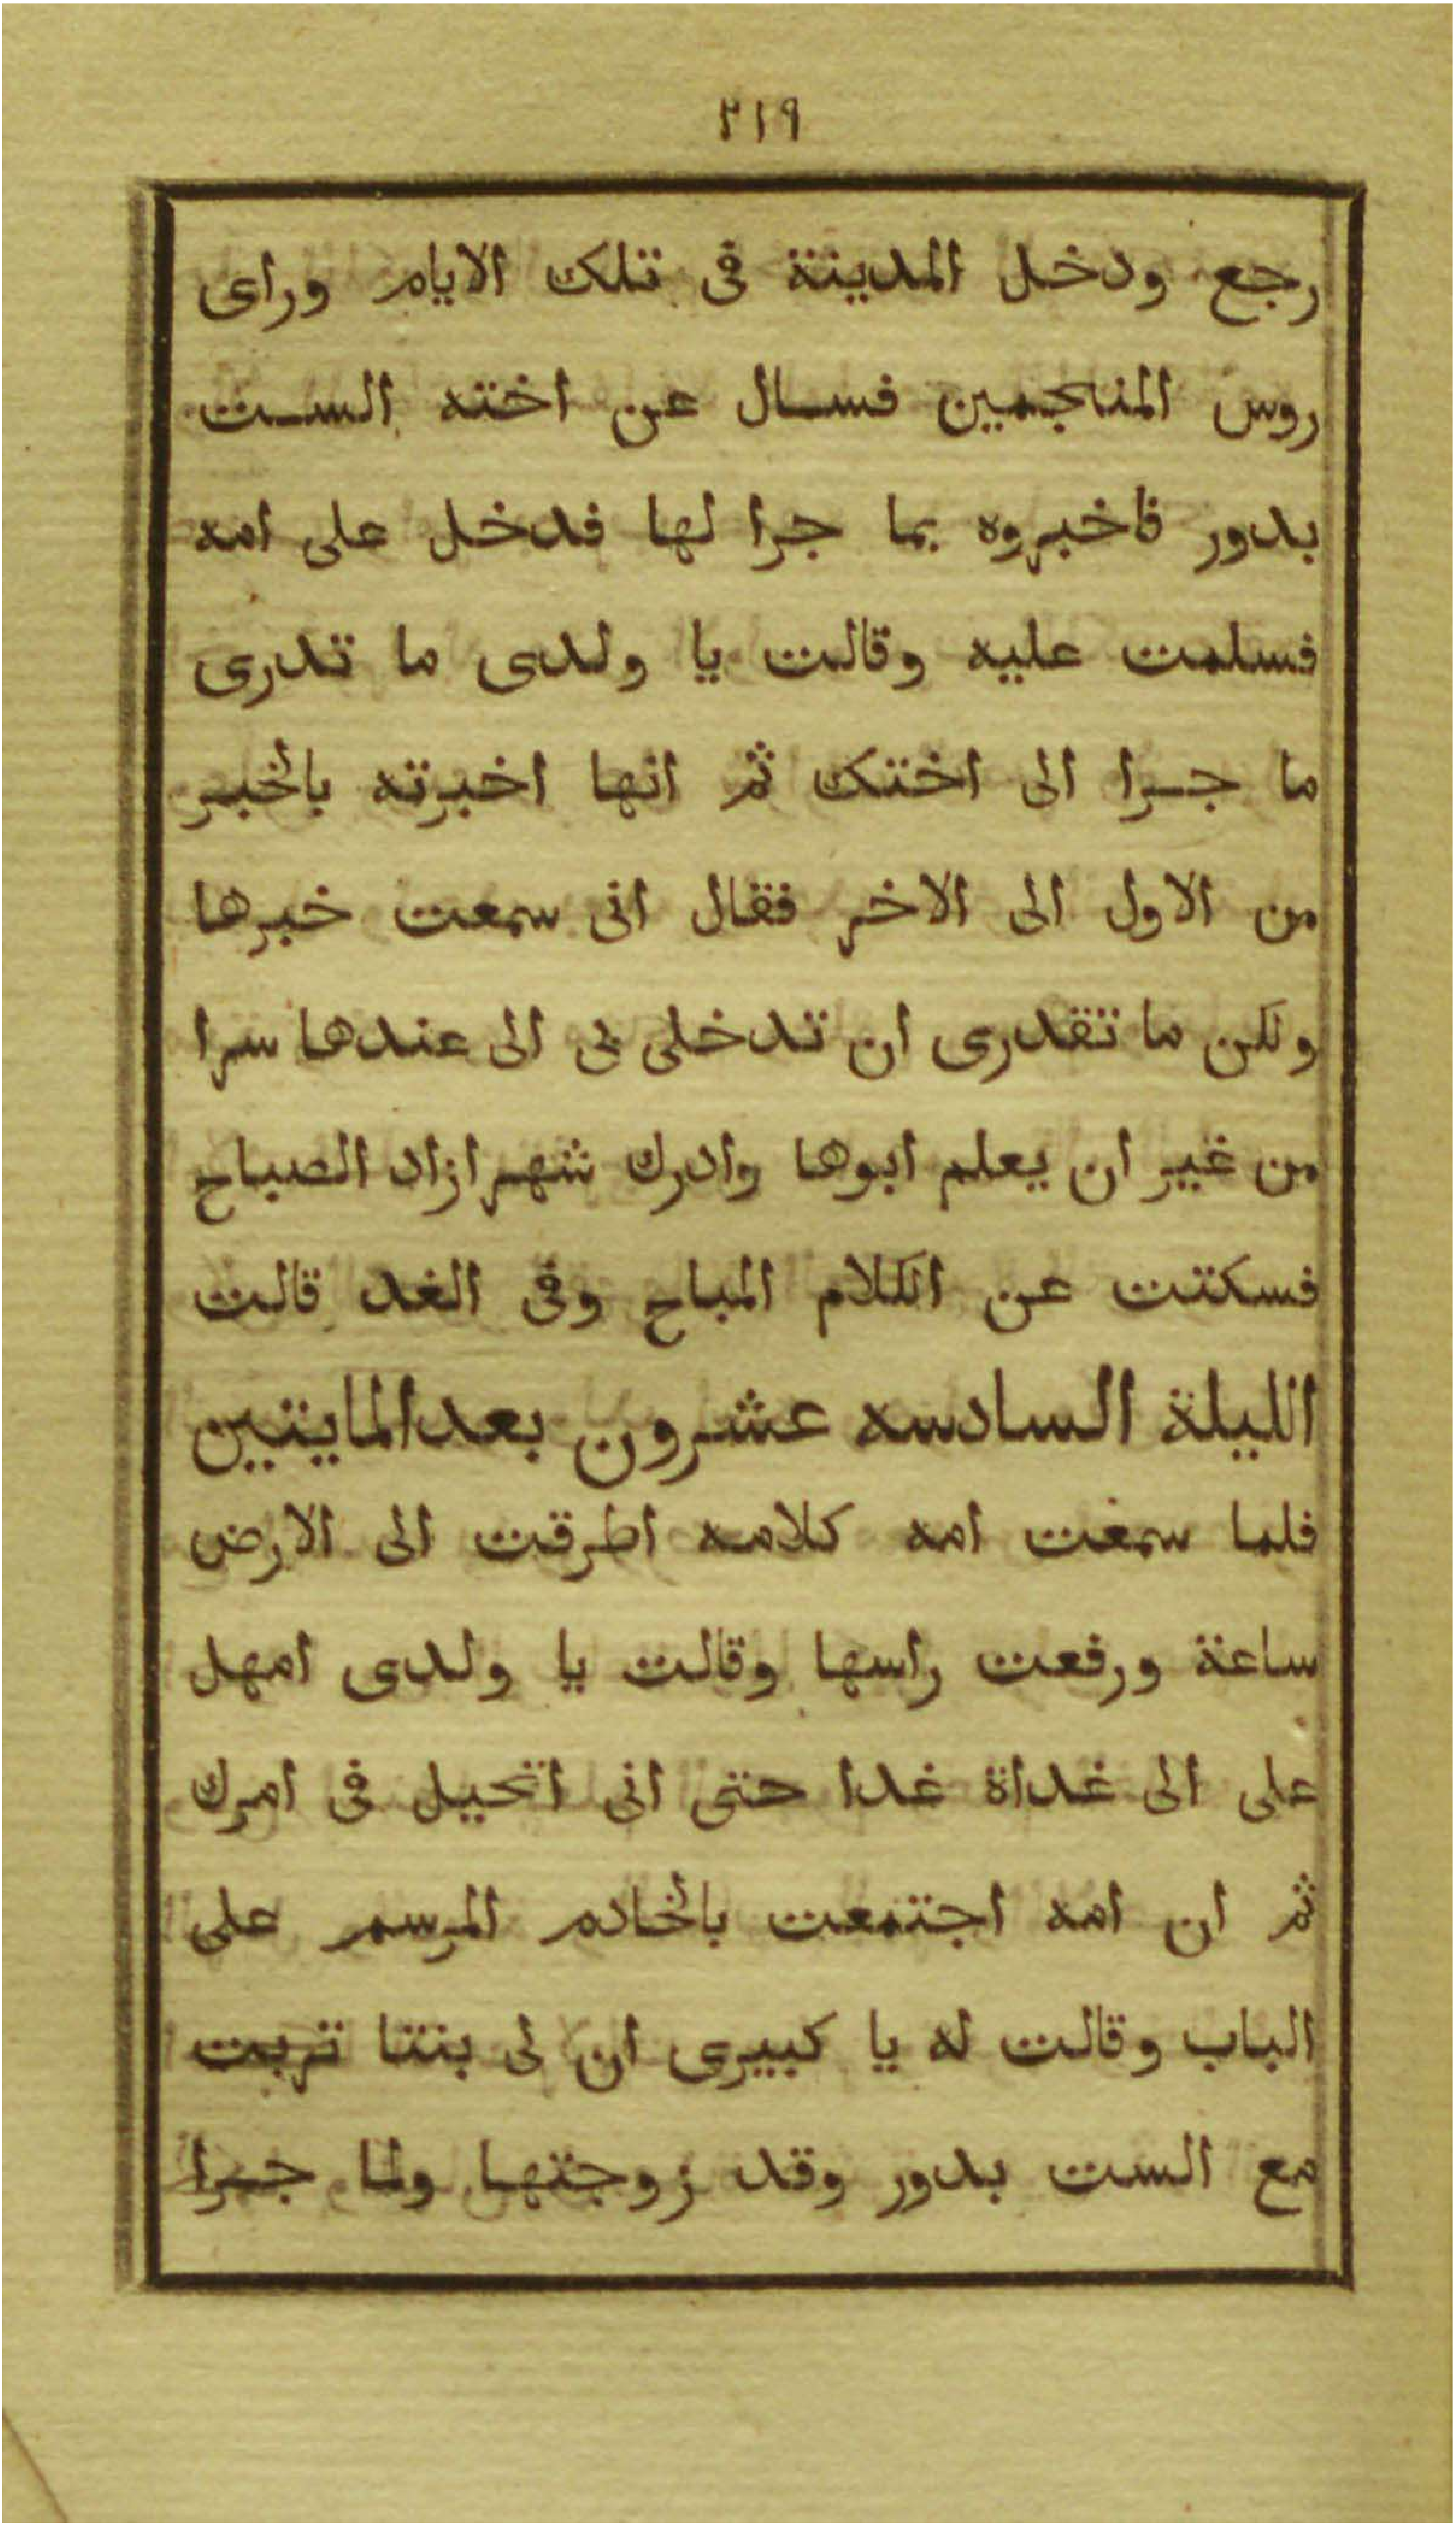 ٢١٩
رجع ودخل المدينة فى تلك الايام وراى
روس المنجمين فسال عن اخته الست
بدور فاخبروه بما جرا لها فدخل على امه
فسلمت عليه وقالت يا ولدى ما تدرى
ما جرا الى اختك ثم انها اخبرته بالخبر
من الاول الى الاخر فقال انى سمعت خبرها
ولكن ما تقدرى ان تدخلى بى الى عندها سرا
من غير ان يعلم ابوها وادرك شهرازاد الصباح
فسكتت عن الكلام المباح وفى الغد قالت
الليلة السادسه عشرون بعد المايتين
فلما سمغت امه كلامه اطرقت الى الارض
ساعة ورفعت راسها وقالت يا ولدى امهل
على الى غداة غدا حتى انى اتحيل فى امرك
ثم ان امه اجتمعت بالخادم المرسم على
الباب وقالت له يا كبيرى ان لى بنتا تربت
مع الست بدور وقد زوجتها ولما جرا